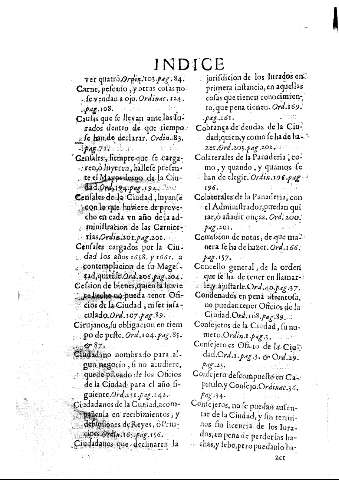 INDICE
ver quatrò. Ordin. 103. pag. 84.
Carne, pescado, y otras cosas no
se vendan a ojo. Ordinac. 124.
pag. 108.
Causas que se llevan ante los Ju-
rados dentro de que tiempo
se han de declarar. Ordin. 83.
pag. 71.
Censales, siempre que se carga-
ren, ò luyeren, hallese presen-
te el Mayordomo de la Ciu-
dad. Ord. 194. pag. 194.
Censales de la Ciudad, luyanse
con lo que huviere de prove-
cho en cada un año de la ad-
ministracion de las Carnice-
rias. Ordin. 201. pag. 201.
Censales cargados por la Ciu-
dad los años 1658. y 1661. a
contemplacion de su Mages-
tad, quitese. Ord. 206. pag. 204.
Cession de bienes, quien la huvie
re hecho no pueda tener Ofi-
cios de la Ciudad, ni ser insa-
culado. Ord. 107. pag. 89.
Cirujanos, su obligacion en tiem
po de peste. Ord. 104. pag. 85.
er 87.
Ciudadano nombrado para al-
gun negocio, si no acudiere,
quede privado de los Oficios
de la Ciudad para el año si-
guiente. Ord. 21. pag. 142.
Ciudadanos de la Ciudad, acom-
pañenla en recibimientos, y
de Reyes, ò Prin-
cipes. Ordin. 165. pag. 156.
Ciudadanos que declinaren la
jurisdicion de los Jurados en
primera instancia, en aquellas
cosas que tienen conocimien-
to, que pena tienen. Ord. 169.
pag. 161.
Cobrança de deudas de la Ciu-
dad, quien, y como se ha de ha-
zer. Ord. 205. pag. 202.
Colaterales de la Panaderia, co-
mo, y quando, y quantos se
han de elegir. Ordin. 196. pag.
196.
Colaterales de la Panaderia, con
el Administrador, puedan qui
tar, ò añadir onças. Ord. 200.
pag. 201.
Comission de notas, de que ma-
nera se ha de hazer. Ord. 166.
pag. 157.
Concello general, de la orden
que se ha de tener en llamar-
le, y ajustarle. Ord. 40. pag. 37.
Condenados en pena afrentosa,
no puedan tener Oficios de la
Ciudad. Ord. 108. pag. 89.
Consejeros de la Ciudad, su nu-
mero. Ordin. 1. pag. 3.
Consejero es Oficio de la Ciu-
dad. Ord. 1. pag. 3. Ord. 29.
pag. 25.
Consejero descompuesto en Ca-
pitulo, y Consejo. Ordinac. 36.
pag. 34.
Consejeros, no se puedan ausen-
tar de la Ciudad, y sin termi-
nos sin licencia de los Jura-
dos, en pena de perder las ha-
chas, y sebo, pero puedanlo ha-
zer